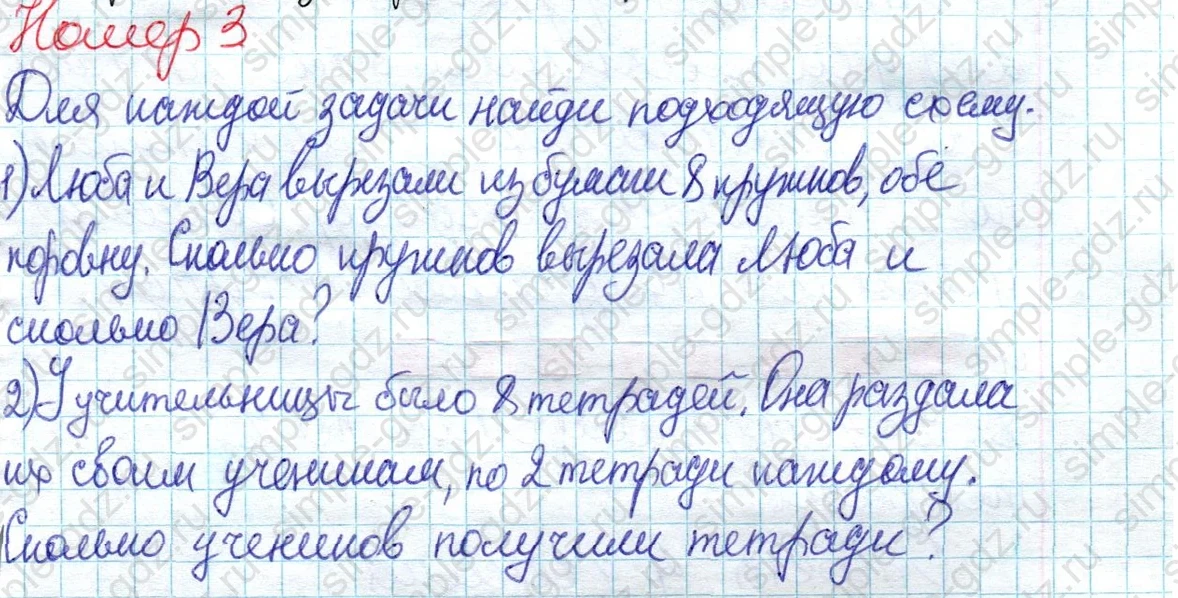 Номер 3
Для каждой задачи найди подходящую схему.
1) Люба и Вера вырезали из бумаги 8 кружков, обе
поровну. Сколько кружков вырезала Люба и
сколько Вера?
2) У учительницы было 8 тетрадей. Она раздала
их своим ученикам, по 2 тетради каждому.
Сколько учеников получили тетради?
simple-gdz.ru